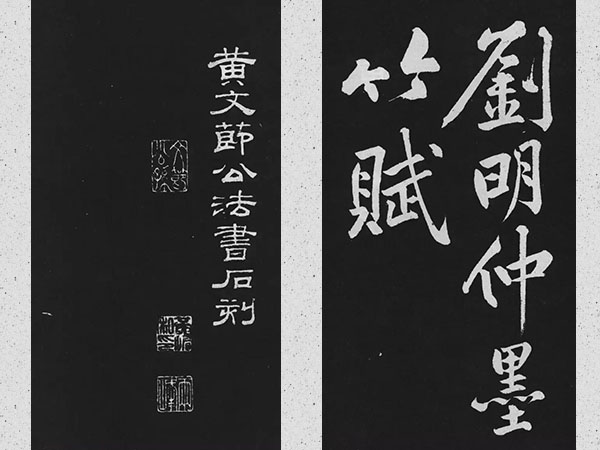 黄文節公法書石刻
劉明仲墨
竹賦